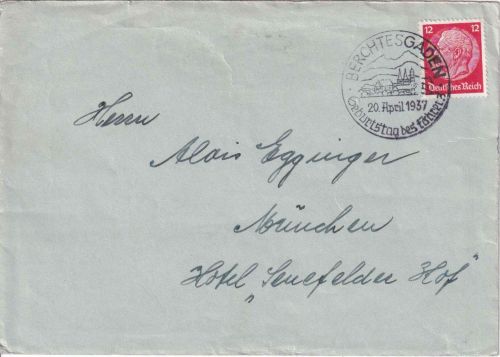 BERCHTESGADEN
20. April 1937
Geburtstag des Führers
12 12
Deutsches Reich
Herrn
Alois Egginger
München
Hotel „Senefelder Hof"